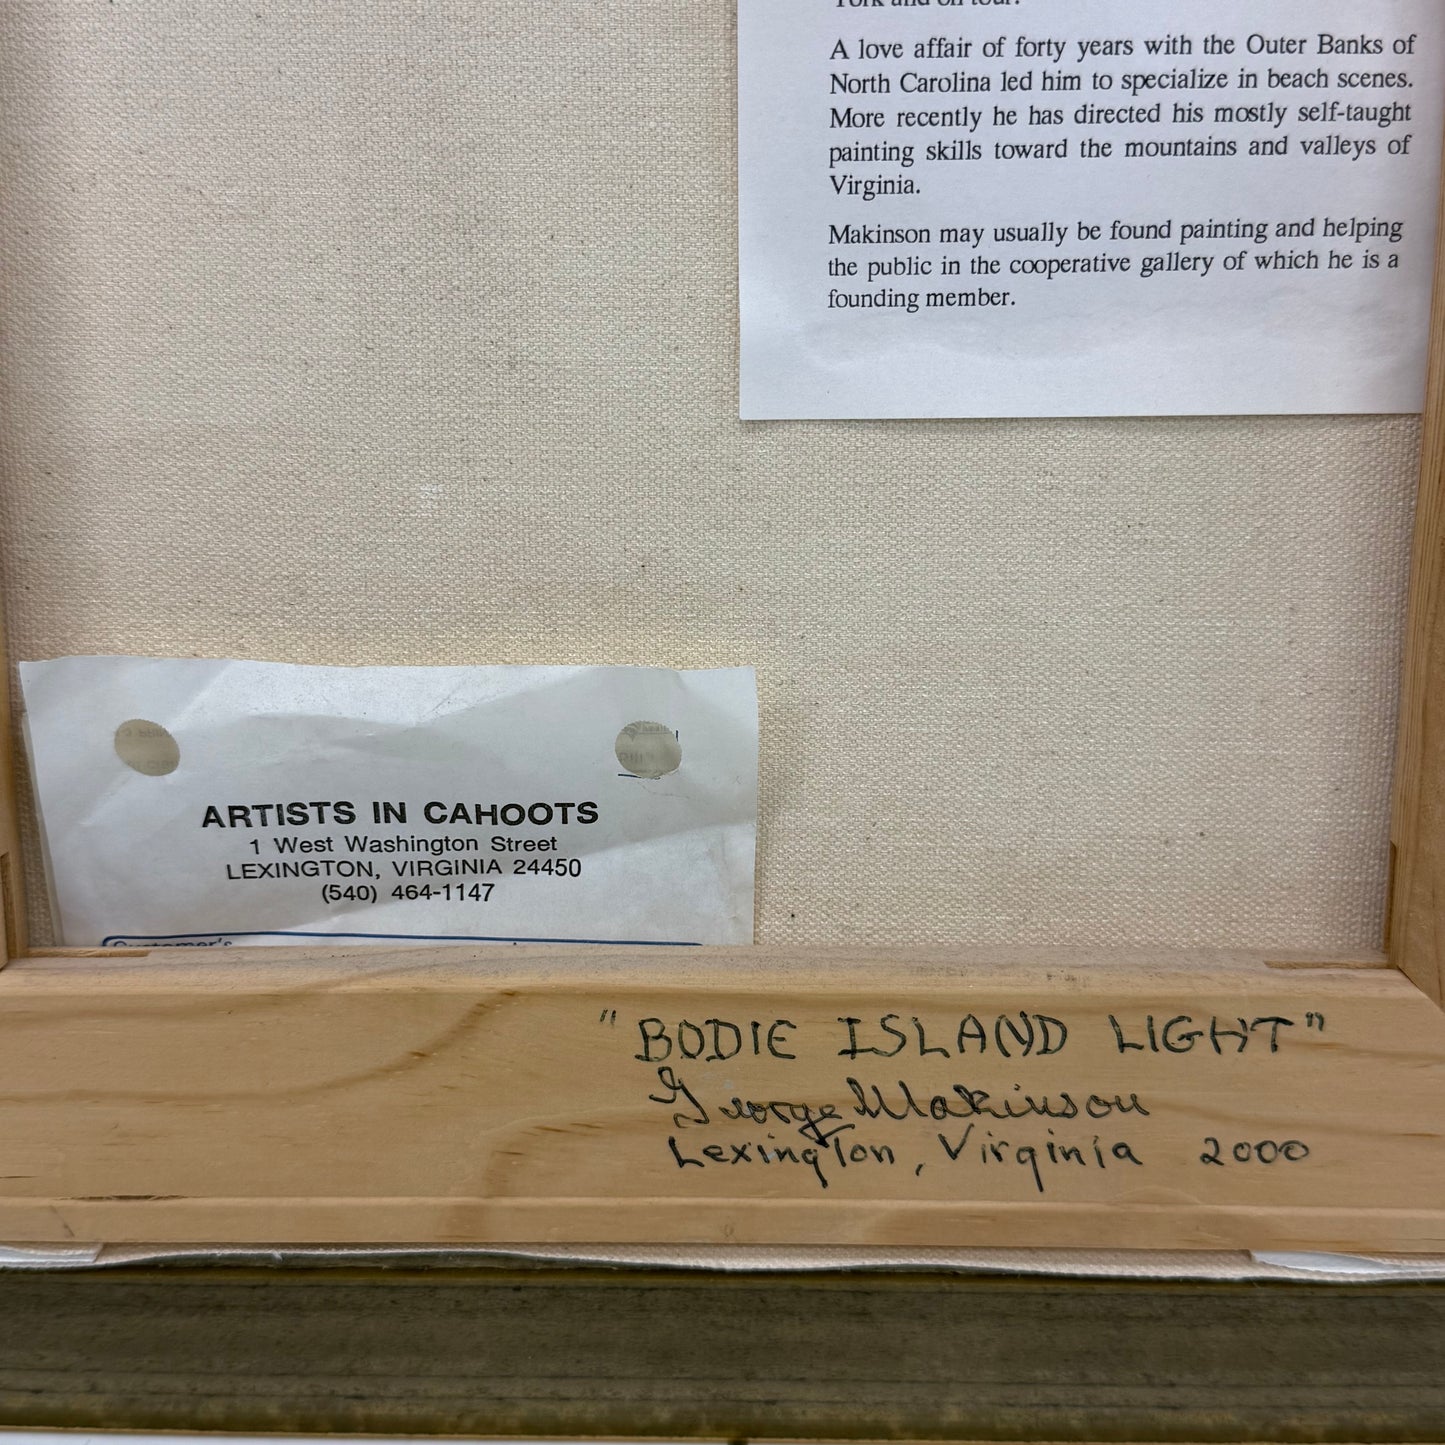 York and on tour.
A love affair of forty years with the Outer Banks of
North Carolina led him to specialize in beach scenes.
More recently he has directed his mostly self-taught
painting skills toward the mountains and valleys of
Virginia.
Makinson may usually be found painting and helping
the public in the cooperative gallery of which he is a
founding member.
ARTISTS IN CAHOOTS
1 West Washington Street
LEXINGTON, VIRGINIA 24450
(540) 464-1147
Customer's
"BODIE ISLAND LIGHT"
George Makinson
Lexington, Virginia 2000